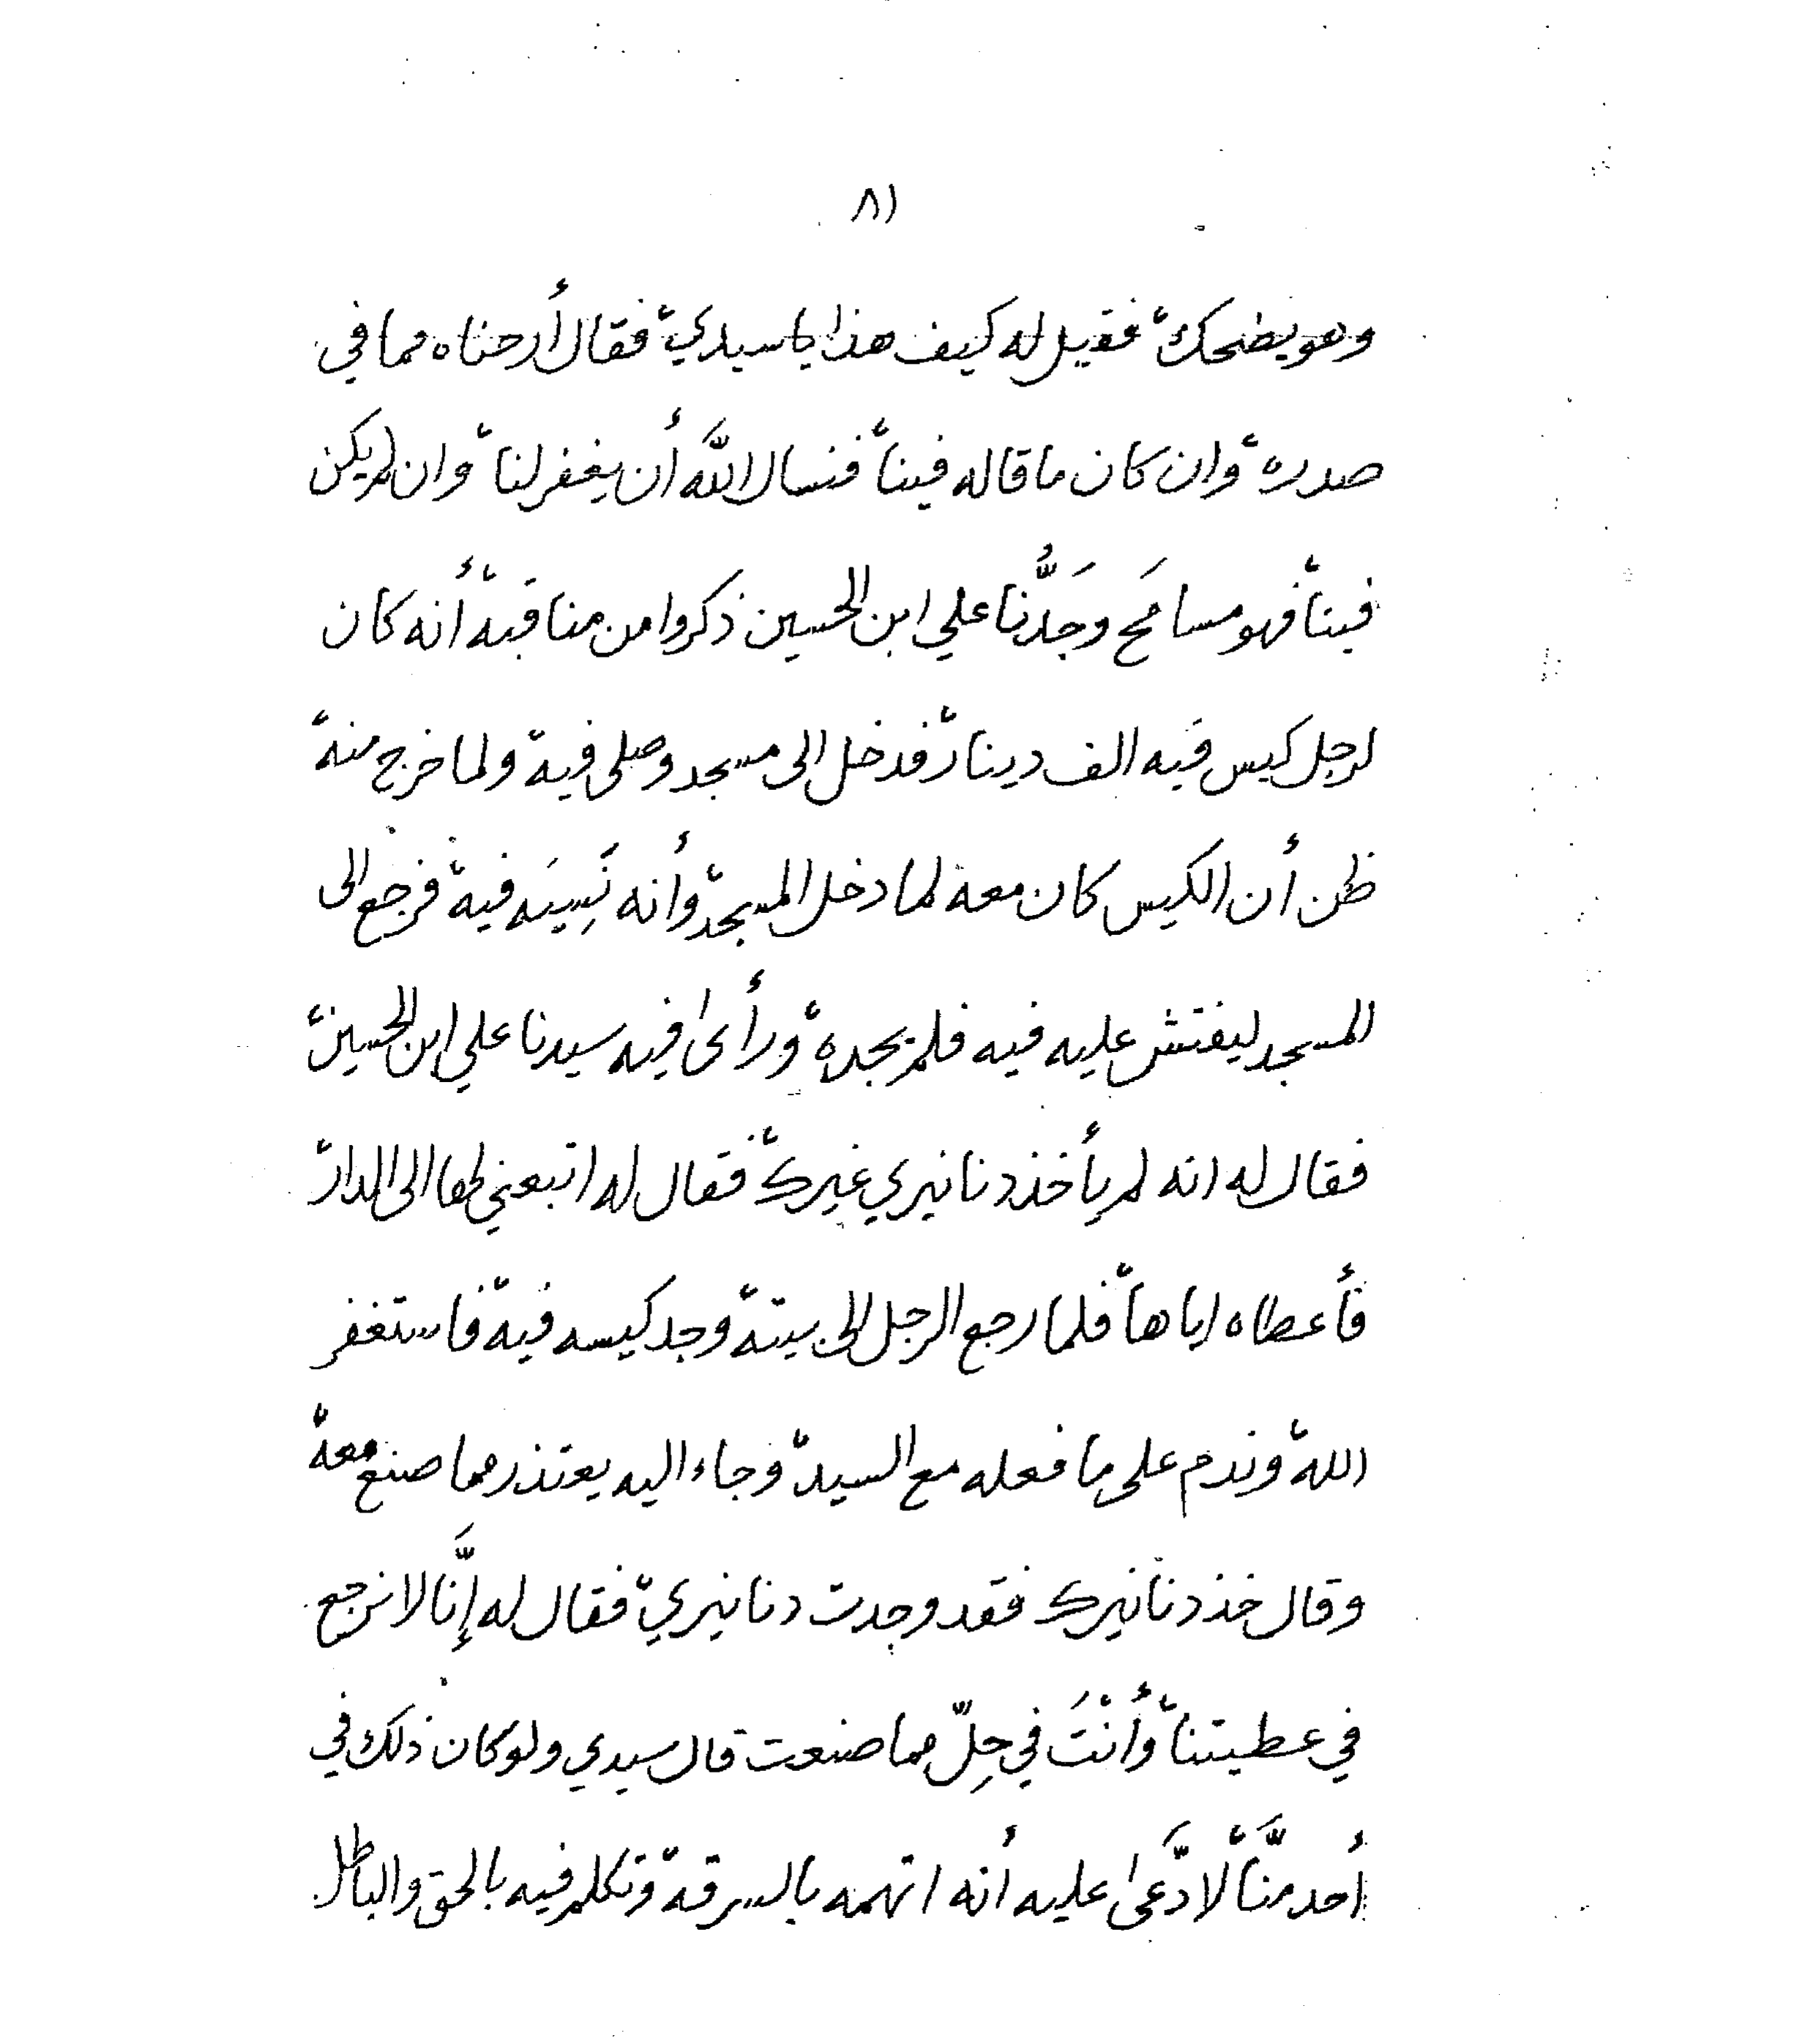 ٨١
وهو يضحك، فقيل له كيف هذا يا سيدي، فقال أرحناه مما في
صدره، وان كان ما قاله فينا، فنسال اللَّه أن يغفر لنا، وان لم يكن
فينا، فهو مسامَح وجَدُّنا علي ابن الحسين ذكروا من مناقبه، أنه كان
لرجل كيس فيه الف دينار، فدخل الى مسجد وصلى فيه، ولما خرج منه،
ظن أن الكيس كان معه لما دخل المسجد، وأنه نَسِيَه فيه، فرجع الى
المسجد ليفتش عليه فيه فلم يجده، ورأىٰ فيه سيدنا علي ابن الحسين،
فقال له انه لم يأخذ دنانيري غيرك، فقال له اتبعني لها الى الدار،
فأعطاه اياها، فلما رجع الرجل الى بيته، وجد كيسه فيه، فاستغفر
الله، وندم على ما فعله مع السيد، وجاء اليه يعتذر مما صنع معه،
وقال خذ دنانيرك فقد وجدت دنانيري، فقال له إنَّا لا نرجع
في عطيتنا، وأنْتَ في حِلّ مما صنعت قال سيدي ولو كان ذلك في
أحد منَّا، لادَّعىٰ عليه أنه اتهمه بالسرقة، وتكلم فيه بالحق والباطل